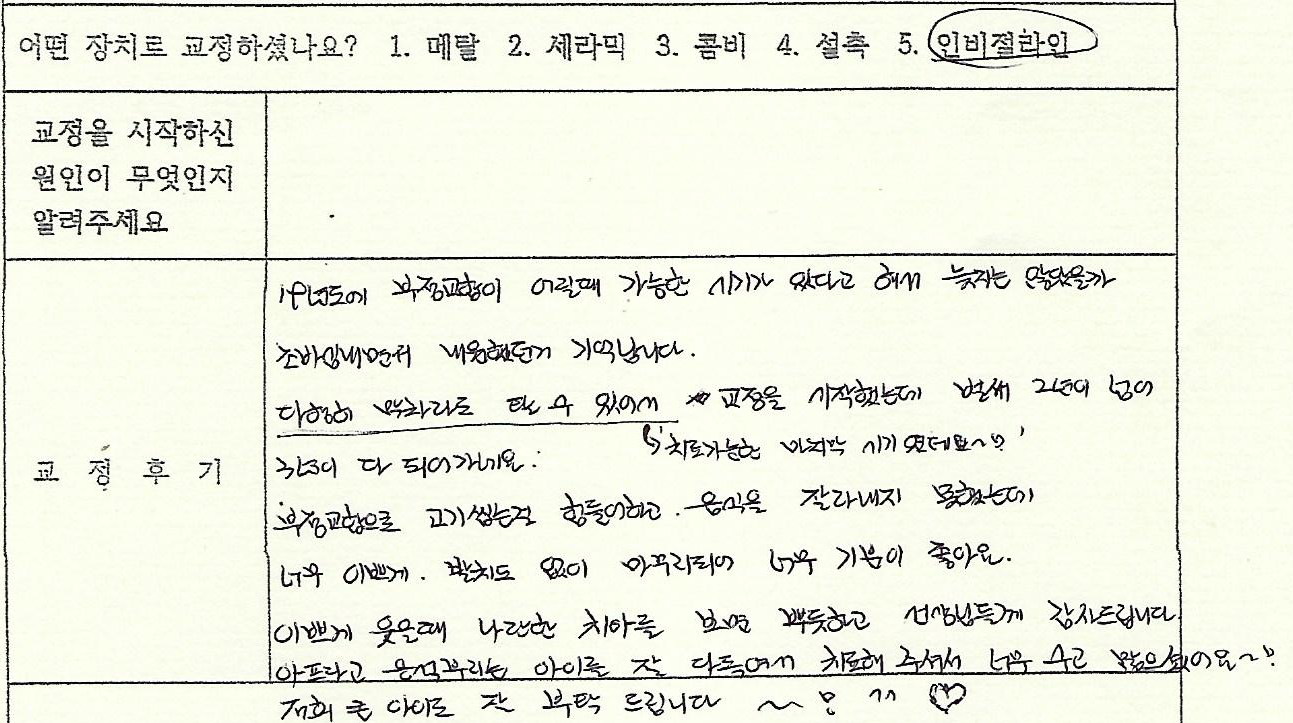 어떤 장치로 교정하셨나요? 1. 메탈 2. 세라믹 3. 콤비 4. 설측 5. 인비절라인
교정을 시작하신
원인이 무엇인지
알려주세요
교 정 후 기
19년도에 부정교합이 어릴때 가능한 시기가 있다고 해서 늦지는 않았을까
조바심내면서 내원했던게 기억납니다.
다행히 막차라도 탈 수 있어서 교정을 시작했는데 벌써 2년이 넘어
'치료가능한 마지막 시기 였데요~'
3년이 다 되어가네요.
부정교합으로 고기씹는걸 힘들어하고. 음식을 잘라내지 못했는데
너무 이쁘게. 발치도 없이 마무리되어 너무 기분이 좋아요.
이쁘게 웃을때 나란한 치아를 보면 뿌듯하고 선생님들께 감사드립니다
아프다고 응석부리는 아이를 잘 다독여서 치료해 주셔서 너무 수고 많으셨어요~
저희 큰 아이도 잘 부탁 드립니다 ~ ^^ ♡